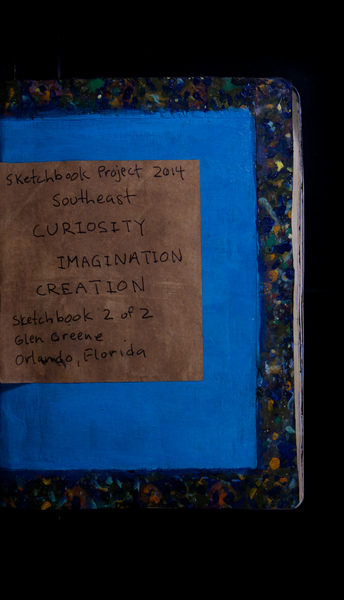 Sketchbook Project 2014
Southeast
CURIOSITY
IMAGINATION
CREATION
Sketchbook 2 of 2
Glen Greene
Orlando, Florida